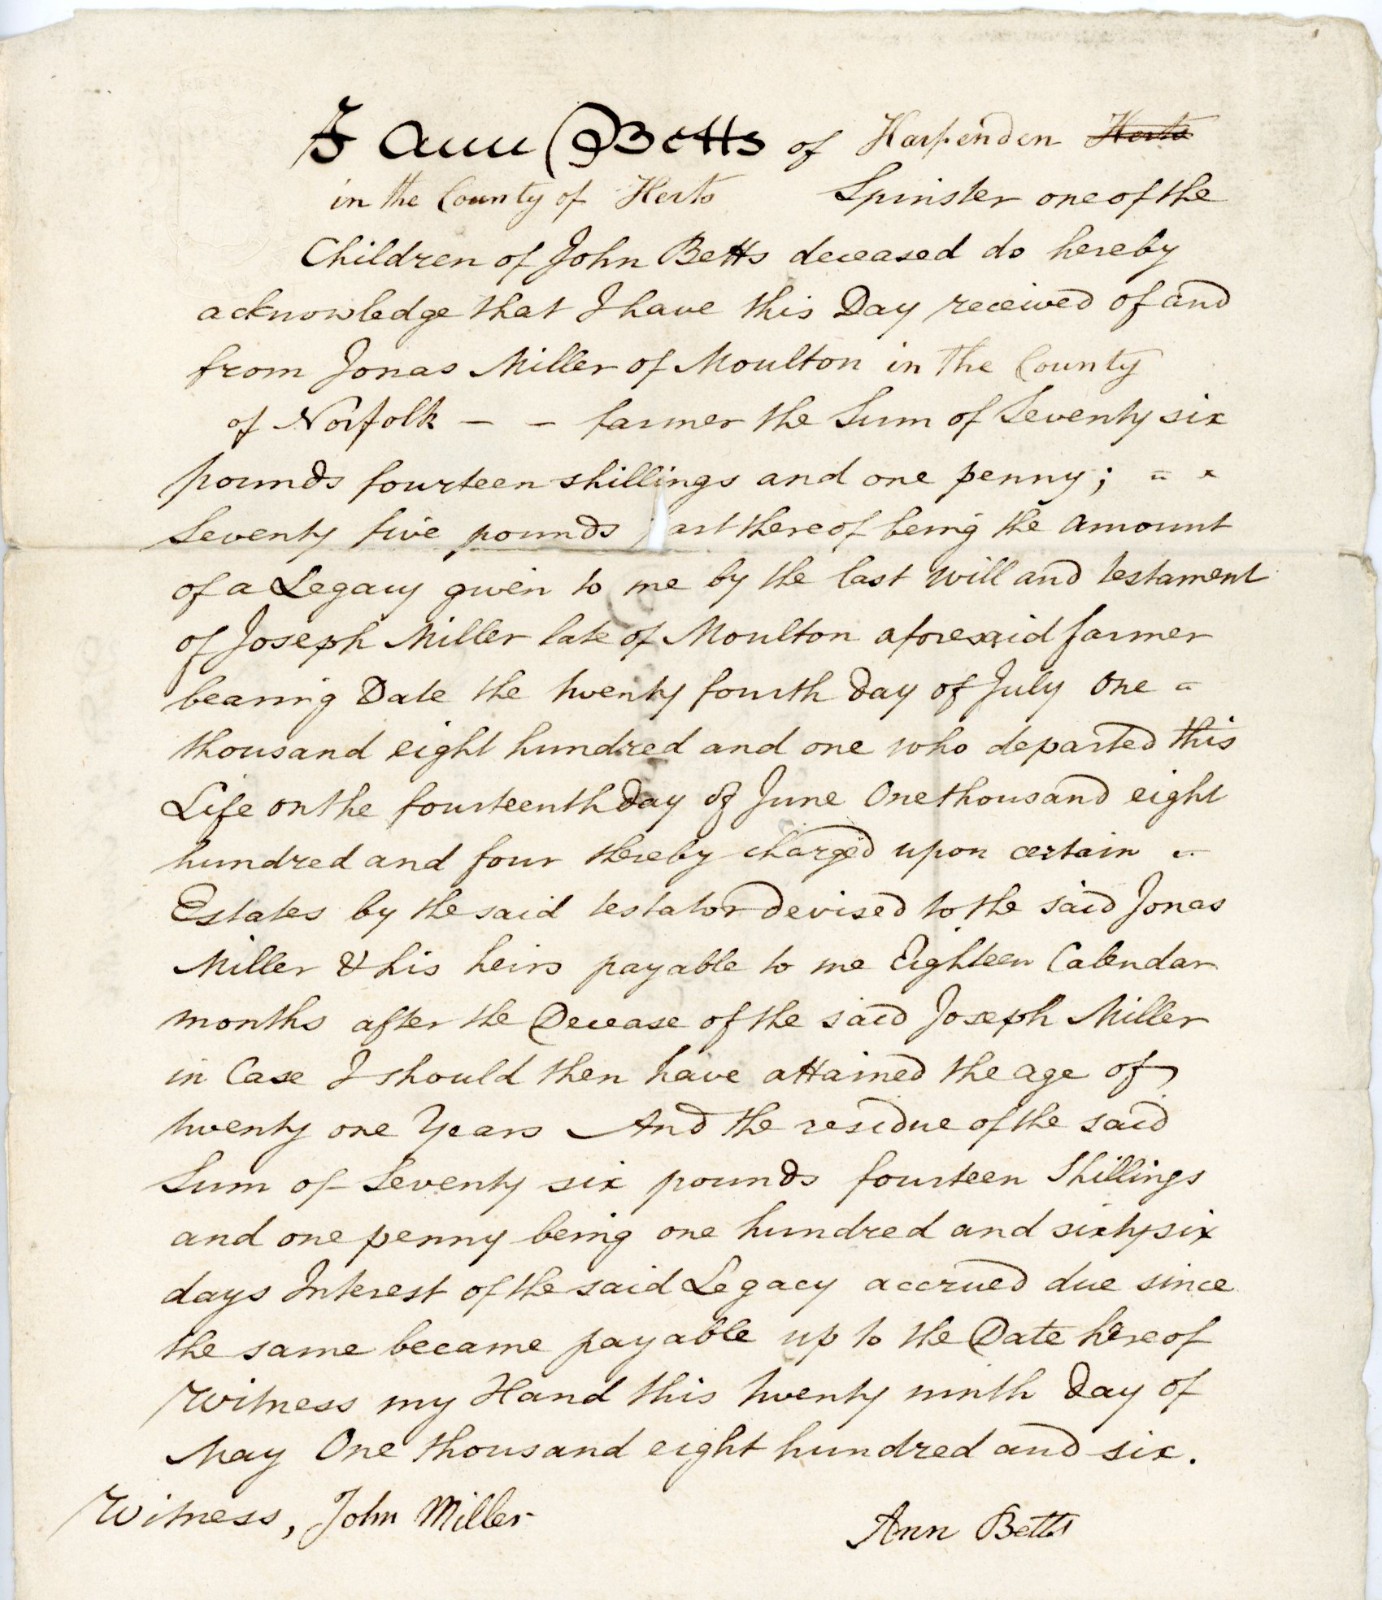 I Ann Betts of Harpenden Herts
in the County of Herts Spinster one of the
Children of John Betts deceased do hereby
acknowledge that I have this Day received of and
from Jonas Miller of Moulton in the County
of Norfolk - - farmer the Sum of Seventy six
pounds fourteen shillings and one penny; = =
Seventy five pounds part thereof being the Amount
of a Legacy given to me by the last Will and testament
of Joseph Miller late of Moulton aforesaid farmer
bearing Date the twenty fourth Day of July One =
thousand eight hundred and one who departed this
Life on the fourteenth Day of June One thousand eight
hundred and four thereby charged upon certain =
Estates by the said testator devised to the said Jonas
Miller & his heirs payable to me Eighteen Calendar
months after the Decease of the said Joseph Miller
in Case I should then have attained the age of
twenty one Years And the residue of the said
Sum of Seventy six pounds fourteen Shillings
and one penny being one hundred and sixty six
days Interest of the said Legacy accrued due since
the same became payable up to the Date hereof
Witness my Hand this twenty ninth Day of
May One thousand eight hundred and six.
Witness, John Miller
Ann Betts